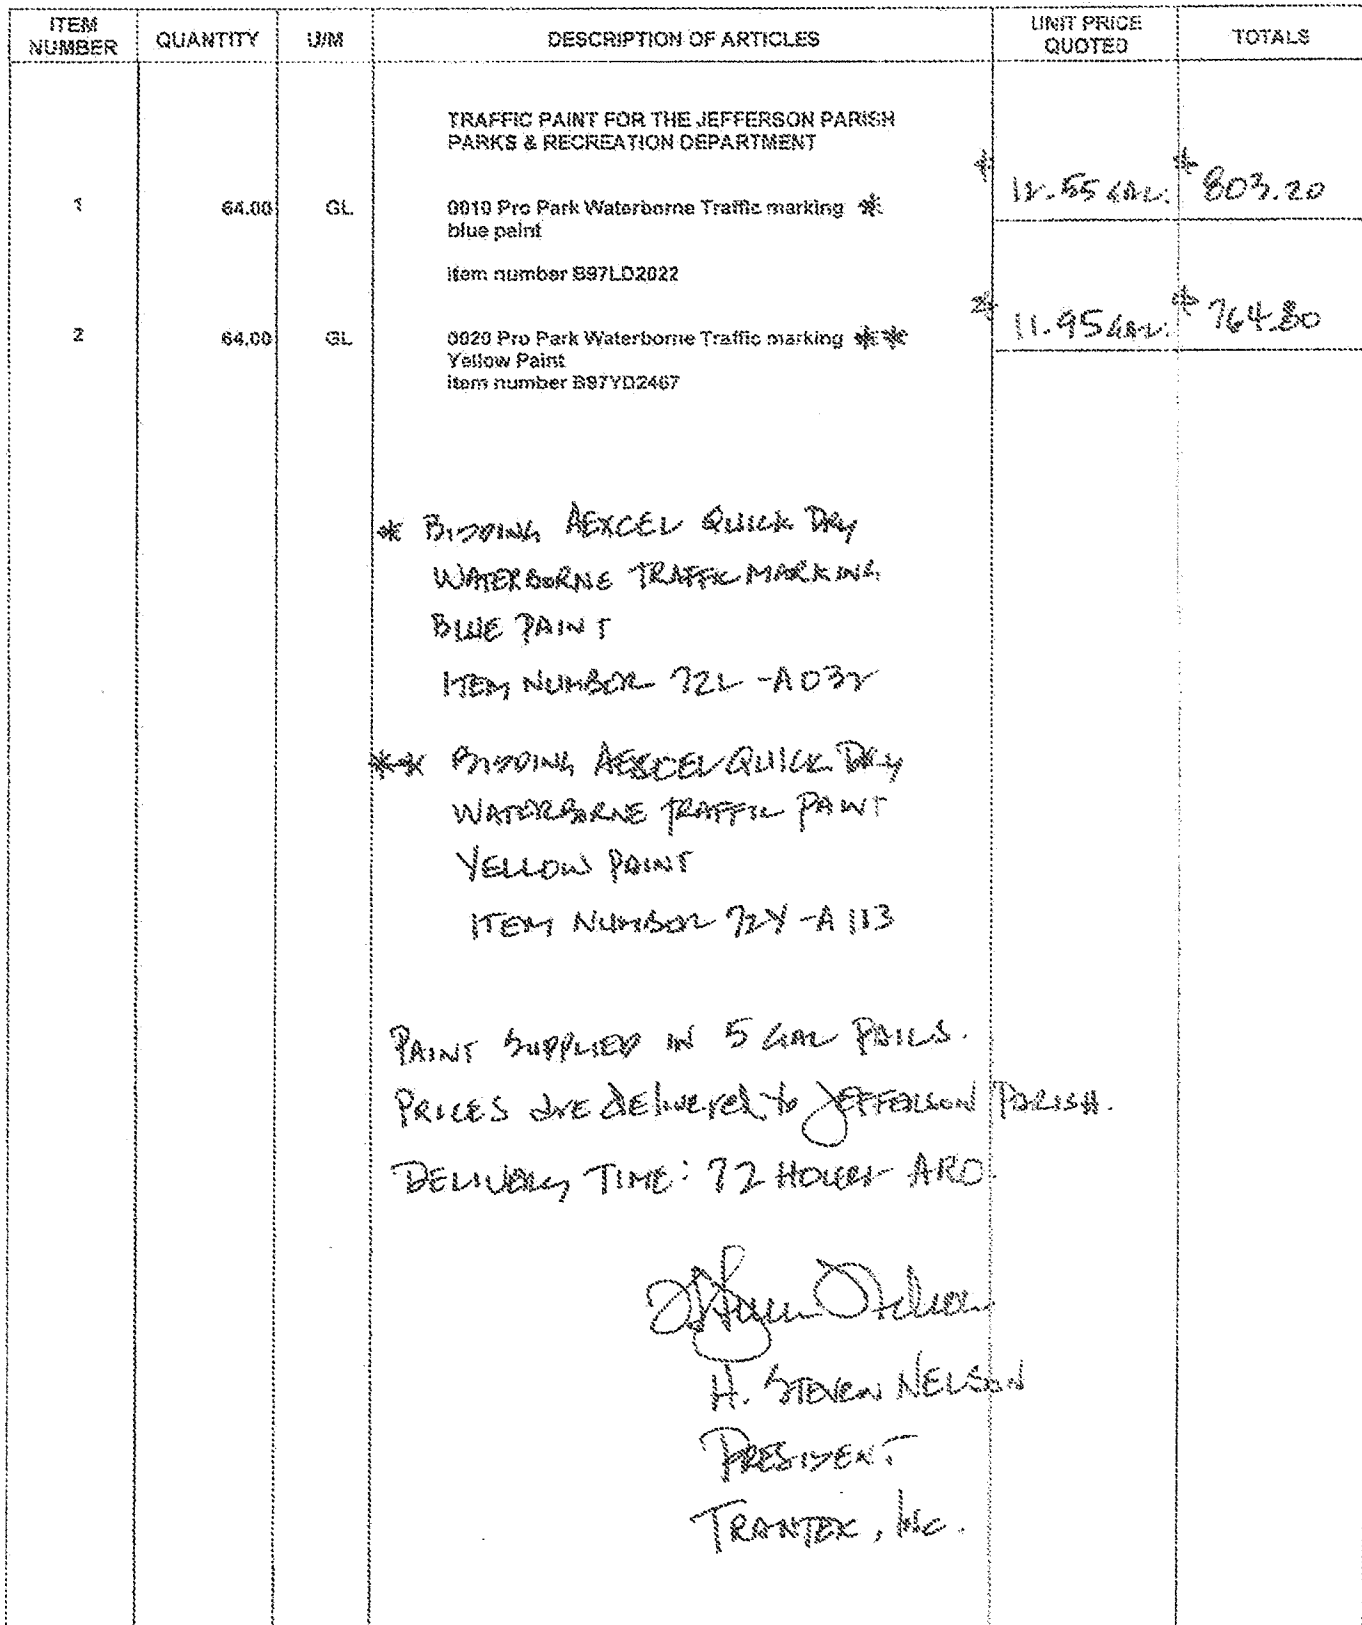 ITEM NUMBER QUANTITY U/M DESCRIPTION OF ARTICLES UNIT PRICE QUOTED TOTALS
TRAFFIC PAINT FOR THE JEFFERSON PARISH
PARKS & RECREATION DEPARTMENT
1 64.00 GL 0010 Pro Park Waterborne Traffic marking * * 12.55 GAL. * 803.20
blue paint
Item number B97LD2022
2 64.00 GL 0020 Pro Park Waterborne Traffic marking ** 11.95 GAL. 764.80
Yellow Paint
item number B97YD2467
* BIDDING AEXCEL QUICK DRY
WATERBORNE TRAFFIC MARKING
BLUE PAINT
ITEM NUMBER 72L-A032
** BIDDING AEXCEL QUICK DRY
WATERBORNE TRAFFIC PAINT
YELLOW PAINT
ITEM NUMBER 72Y-A113
PAINT SUPPLIED IN 5 GAL PAILS.
PRICES are delivered to JEFFERSON PARISH.
DELIVERY TIME: 72 HOURS ARO.
H. STEVEN NELSON
PRESIDENT
TRANTEX, INC.